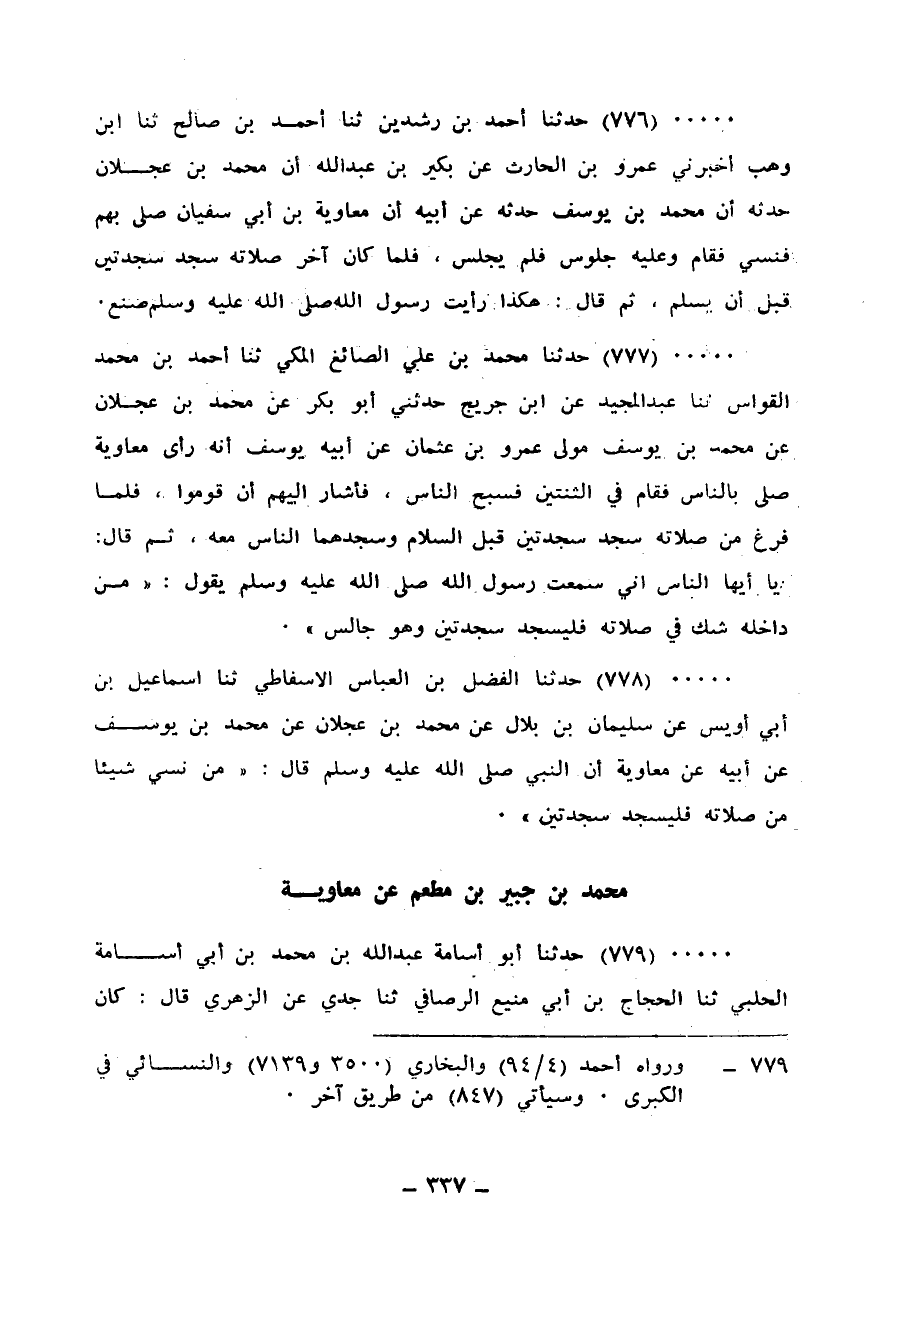 ٠٠٠٠٠ (٧٧٦) حدثنا أحمد بن رشدين ثنا أحمـد بن صالح ثنا ابن
وهب أخبرني عمرو بن الحارث عن بكير بن عبدالله أن محمد بن عجـلان
حدثه أن محمد بن يوسف حدثه عن أبيه أن معاوية بن أبي سفيان صلى بهم
فنسي فقام وعليه جلوس فلم يجلس ، فلما كان آخر صلاته سجد سجدتين
قبل أن يسلم ، ثم قال : هكذا رأيت رسول الله صلى الله عليه وسلم صنع٠
٠٠٠٠٠ (٧٧٧) حدثنا محمد بن علي الصائغ المكي ثنا أحمد بن محمد
القواس ثنا عبدالمجيد عن ابن جريج حدثني أبو بكر عن محمد بن عجـلان
عن محمد بن يوسف مولى عمرو بن عثمان عن أبيه يوسف أنه رأى معاوية
صلى بالناس فقام في الثنتين فسبح الناس ، فأشار اليهم أن قوموا ، فلمـا
فرغ من صلاته سجد سجدتين قبل السلام وسجدهما الناس معه ، ثـم قال:
يا أيها الناس اني سمعت رسول الله صلى الله عليه وسلم يقول : « مـن
داخله شك في صلاته فليسجد سجدتين وهو جالس » ٠
٠٠٠٠٠ (٧٧٨) حدثنا الفضل بن العباس الاسفاطي ثنا اسماعيل بن
أبي أويس عن سليمان بن بلال عن محمد بن عجلان عن محمد بن يوسـف
عن أبيه عن معاوية أن النبي صلى الله عليه وسلم قال : « من نسي شيئا
من صلاته فليسجد سجدتين » ٠
محمد بن جبير بن مطعم عن معاويـة
٠٠٠٠٠ (٧٧٩) حدثنا أبو أسامة عبدالله بن محمد بن أبي أسـامة
الحلبي ثنا الحجاج بن أبي منيع الرصافي ثنا جدي عن الزهري قال : كان
٧٧٩ ـ ورواه أحمد (٩٤/٤) والبخاري (٣٥٠٠ و٧١٣٩) والنسـائي في
الكبرى ٠ وسيأتي (٨٤٧) من طريق آخر ٠
ـ ٣٣٧ ـ